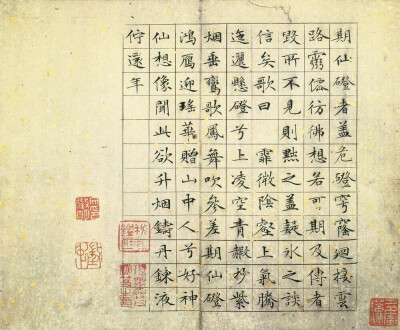 期仙磴者蓋危磴穹窿迴接雲
路霛僊彷彿想若可期及傳者
毀所不見則黜之蓋疑氷之談
信矣歌曰 霏微陰壑上氣騰
迤邐懸磴兮上凌空青霞杪紫
烟垂鸞歌鳳舞吹參差期仙磴
鴻鴈迎瑤華贈山中人兮好神
仙想像聞此欲升烟鑄丹鍊液
佇還年